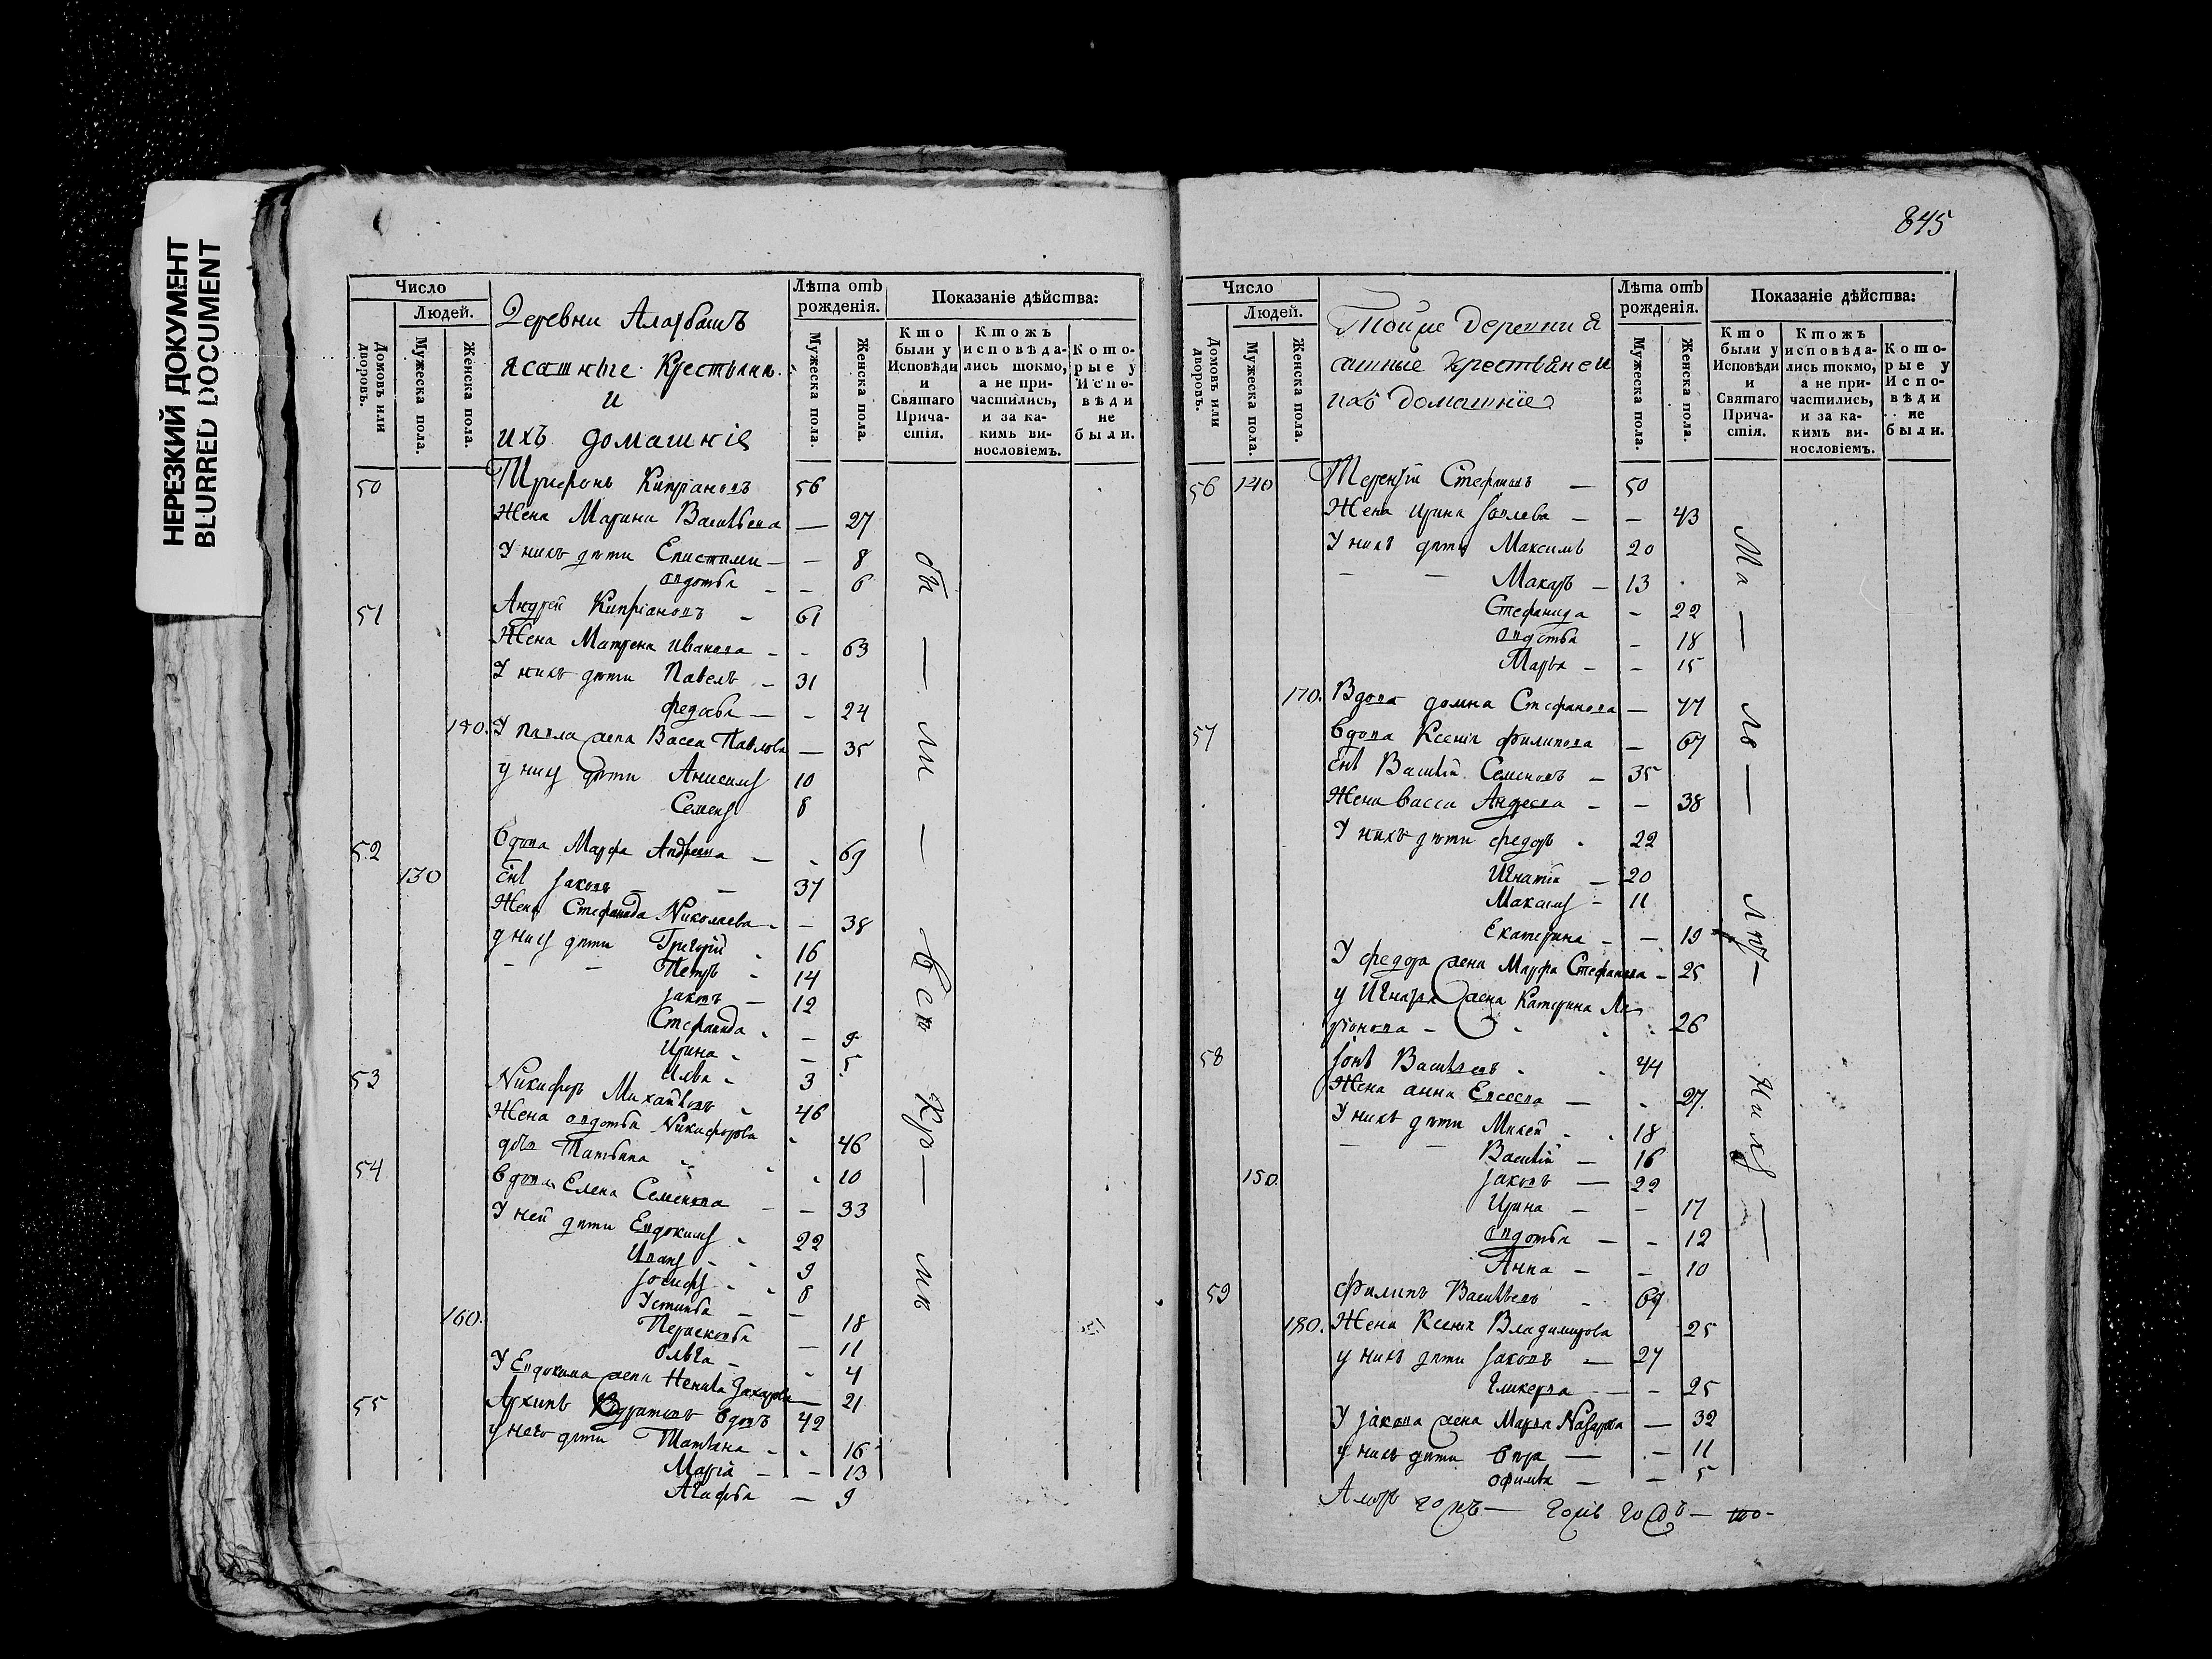 НЕРЕЗКИЙ ДОКУМЕНТ
BLURRED DOCUMENT
Число
Людей.
Домовъ или дворовъ.
Мужеска пола.
Женска пола.
Деревни Алатбашъ
ясашные Крестьяня
и
ихъ домашнія
Лѣта отъ рожденія.
Мужеска пола.
Женска пола.
Показаніе дѣйства:
Кто были у Исповѣди и Святаго Причастія.
Ктожъ исповѣдались токмо, а не причастились, и за какимъ винословіемъ.
Которые у Исповѣди не были.
50 Трифонъ Кипріановъ 56
Жена Марина Васильева — 27
У нихъ дѣти Епистими — — 8
Овдотья — — 6
51 Андрей Кипріановъ — 61
Жена Матрена Иванова — — 63
У нихъ дѣти Павелъ — 31
Федосья — — 24
140. У Павла жена Васса Павлова — 35
у них дѣти Анисимъ 10
Семенъ 8
52 Вдова Марфа Андреева — — 69
130 Сынъ Яковъ — — 37
Жена Стефанида Николаева — — 38
у них дѣти Григорій 16
Петръ 14
Яковъ — 12
Стефанида — — 9
Ирина — — 5
Илья — 3
53 Никифоръ Михайловъ 46
Жена Овдотья Никифорова 46
дочь Татьяна 10
54 Вдова Елена Семенова — — 33
У ней дѣти Евдокимъ 22
Иванъ 9
Іосифъ 8
Устинья — — 18
160. Перасковья — 11
Ольга — 4
У Евдокима жена Ненила Захарова — 21
55 Архипъ вдовъ 42
у него дѣти Татьяна 16
Марія — — 13
Агафья — 9
бы — ли — всѣ
845
Число
Людей.
Домовъ или дворовъ.
Мужеска пола.
Женска пола.
Тойже Деревни Я
сашные крестьяне и
ихъ домашніе
Лѣта отъ рожденія.
Мужеска пола.
Женска пола.
Показаніе дѣйства:
Кто были у Исповѣди и Святаго Причастія.
Ктожъ исповѣдались токмо, а не причастились, и за какимъ винословіемъ.
Которые у Исповѣди не были.
56 140 Терентій Стефановъ — 50
Жена Ирина — — 43
У нихъ дѣти Максимъ 20
Макаръ — 13
Стефанида — 22
Овдотья — 18
Марья — — 15
170. Вдова Домна Стефанова — 77
57 Вдова Ксенія Филипова — 67
Сынъ Василій Семеновъ — 35
Жена Васса Андреева — — 38
У нихъ дѣти Федоръ 22
Игнатій — 20
Максимъ — 11
Екатерина — — 19
У Федора жена Марфа Стефанова — 25
у Игнатья жена Катерина Ла
ріонова — 26
58 Іона Васильевъ 44
Жена Анна Елисеева — 27.
У нихъ дѣти Михей 18
Василій — 16
150. Яковъ — 22
Ирина — — 17
Овдотья — — 12
Анна — — 10
59 Филипъ Васильевъ 67
180. Жена Ксенія Владимирова 25
у нихъ дѣти Яковъ — 27
Гликерья — — 25
У Якова жена Марья Назарова — 32
у нихъ дѣти Вѣра — — 11
Офимья — — 5
Ма — ло — лѣт — них —